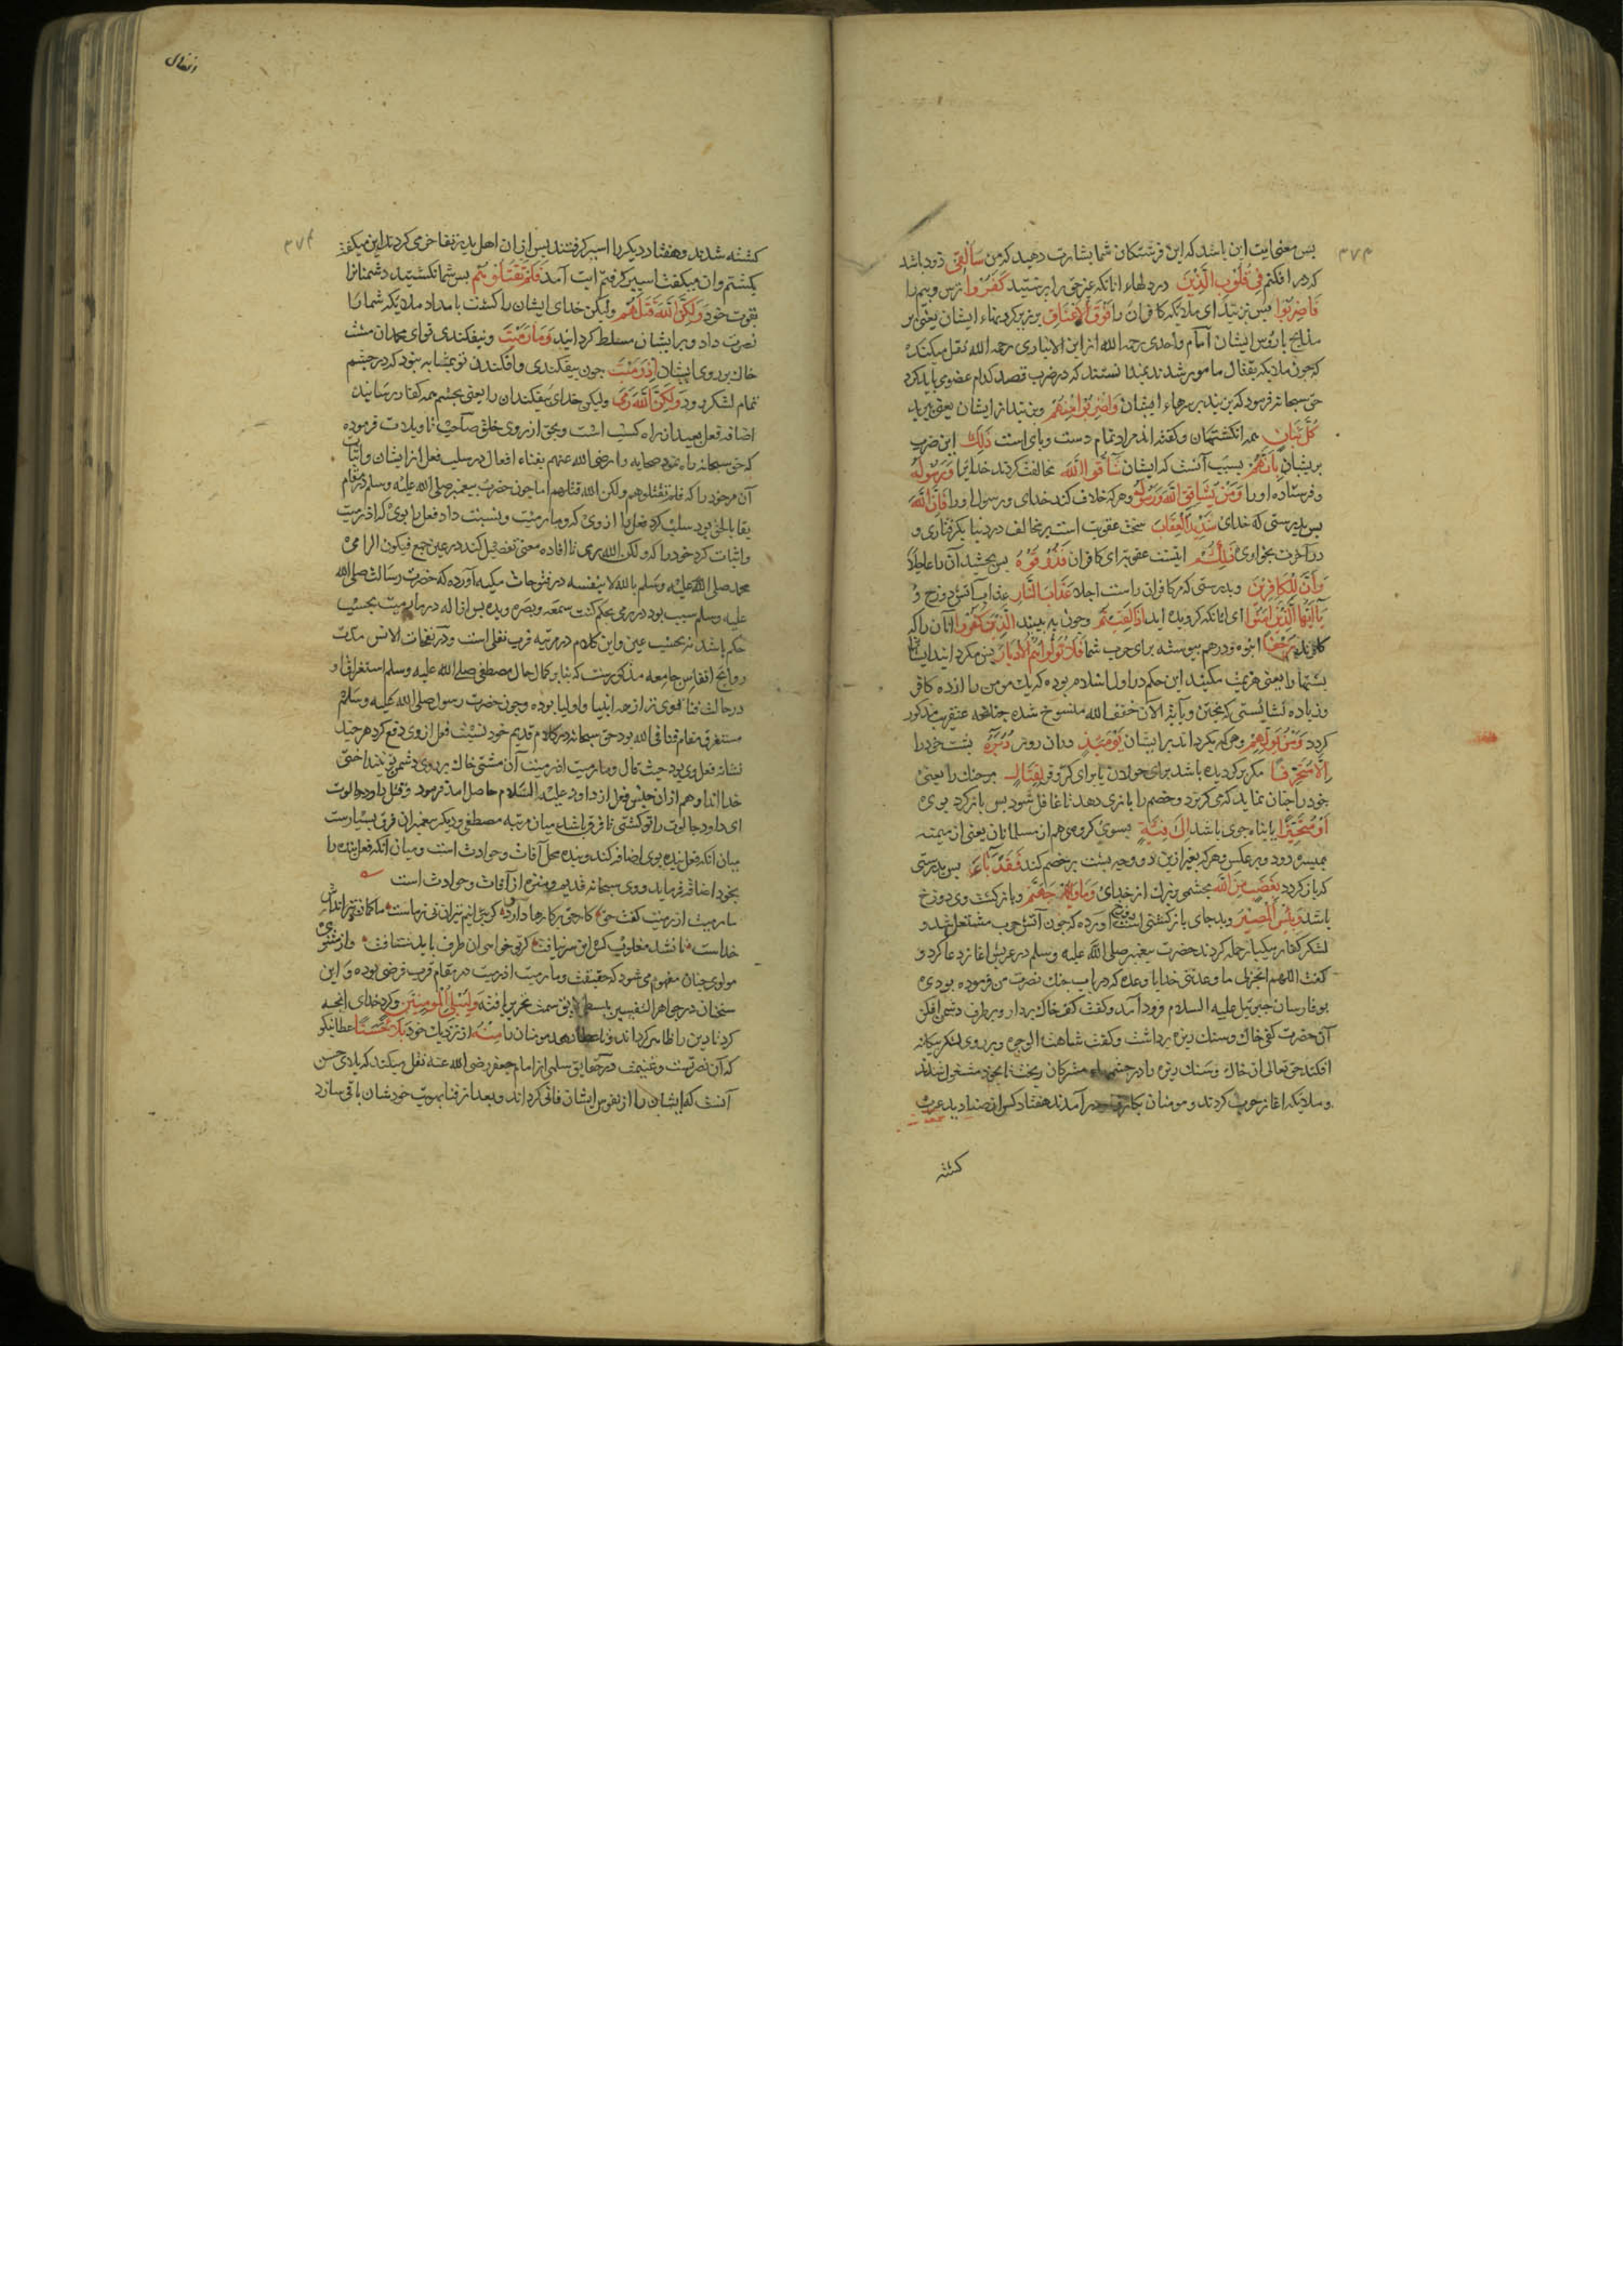 ۳۷۳
پس معنی ایت این باشد که این فرشتکان شما بشارت دهید که من سَأُلْقِی زود باشد
که در افکنم فِی قُلُوبِ الَّذِینَ در دلهاء انانکه غیر حق را پرستیدند کَفَرُوا ترس و بیم را
فَاضْرِبُوا پس بزنید ای ملایکه کافران را فَوْقَ الْأَعْنَاقِ بر زبر کردنهاء ایشان یعنی بر
مذابح یا رؤس ایشان امام واحدی رحمه الله از ابن الانباری رحمه الله نقل میکند که
که چون ملایکه بقتال مامور شدند ندانستند که در ضرب قصد کدام عضو می باید کرد
حق سبحانه فرمود که بزنید بر سرهاء ایشان وَاضْرِبُوا مِنْهُمْ و بزنید از ایشان یعنی ببرید
کُلَّ بَنَانٍ همه انکشتهاشان و کفته اند مراد تمام دست و پای است ذَلِکَ این ضرب
بریشان بِأَنَّهُمْ بسبب آنست که ایشان شَاقُّوا اللَّهَ مخالفت کردند خدایرا وَرَسُولَهُ
و فرستاده او را وَمَنْ یُشَاقِقِ اللَّهَ وَرَسُولَهُ و هر که خلاف کند خدای و رسول او را فَإِنَّ اللَّهَ
پس بدرستی که خدای شَدِیدُ الْعِقَابِ سخت عقوبت است بر مخالف در دنیا بکرفتاری و
در آخرت بخواری ذَلِکُمْ اینست عقوبت برای کافران فَذُوقُوهُ پس بچشید آن را عاجلا
وَأَنَّ لِلْکَافِرِینَ و بدرستی که مر کافران راست اجلا عَذَابَ النَّارِ عذاب آتش دوزخ
یَا أَیُّهَا الَّذِینَ آمَنُوا ای انانکه کرویده اید إِذَا لَقِیتُمُ چون به بینید الَّذِینَ کَفَرُوا انان را که
کافرند زَحْفًا انبوه و در هم پیوسته برای حرب شما فَلَا تُوَلُّوهُمُ الْأَدْبَارَ پس مکردانید ایشانرا
پشتها را یعنی هزیمت مکنید این حکم در اول اسلام بوده که یک مومن را از ده کافر
و زیاده نشایستی که بگریزد و بایة الآن خفف الله منسوخ شده چنانچه عنقریب مذکور
کردد وَمَنْ یُوَلِّهِمْ و هر که بکرداند بر ایشان یَوْمَئِذٍ دران روز دُبُرَهُ پشت خود را
إِلَّا مُتَحَرِّفًا مکر برکردیده باشد برای جولان یا برای کر و فر لِقِتَالٍ مر جنک را یعنی
خود را چنان نماید که می کریزد و خصم را بازی دهد تا غافل شود پس باز کردد بوی
أَوْ مُتَحَیِّزًا یا پناه جوی باشد إِلَی فِئَةٍ بسوی کروهی هم از مسلمانان یعنی از میمنه
بمیسره رود و برعکس و هر که بغیر ازین دو وجه پشت بر خصم کند فَقَدْ بَاءَ پس بدرستی
که باز کردد بِغَضَبٍ مِنَ اللَّهِ بخشمی بزرک از خدای وَمَأْوَاهُ جَهَنَّمُ و باز کشت وی دوزخ
باشد وَبِئْسَ الْمَصِیرُ و بد جای باز کشتی است اورده که چون آتش حرب مشتعل شد و
لشکر کفار بیکبار حمله کردند حضرت پیغمبر صلی الله علیه وسلم در عریش اغاز دعا کرد و
کفت اللهم انجز لی ما وعدتنی خدایا وعده که در باب جنک نصرت من فرموده بودی
بوفا رسان جبرئیل علیه السلام فرود آمد و کفت کف خاک بردار و بر طرف دشمن افکن
آن حضرت کفی خاک و سنک ریزه برداشت و کفت شاهت الوجوه و بر روی لشکر بیکانه
افکند حق تعالی ان خاک و سنک ریزه را در چشمهاء مشرکان ریخت تا بخود مشغول شدند
و ملایکه اغاز حرب کردند و مومنان در آمدند هفتاد کس از صنادید عرب
کشته
انفال
۳۷۴
کشته شدند و هفتاد دیکر را اسیر کرفتند پس ازان اهل بدر تفاخر می کردند این میکفت
بکشتم و ان میکفت اسیر کرفتم ایت آمد فَلَمْ تَقْتُلُوهُمْ پس شما نکشتید دشمنانرا
بقوت خود وَلَکِنَّ اللَّهَ قَتَلَهُمْ ولیکن خدای ایشان را کشت بامداد ملایکه شما را
نصرت داد و بر ایشان مسلط کردانید وَمَا رَمَیْتَ و نیفکندی تو ای محمد ان مشت
خاک بر روی ایشان إِذْ رَمَیْتَ چون بیفکندی و افکندن تو بمثابه نبود که در چشم
تمام لشکر رود وَلَکِنَّ اللَّهَ رَمَی ولیکن خدای بیفکند ان را یعنی بچشم همه کفار رسانید
اضافه فعل بعبد از راه کسب است و بحق از روی خلق صاحب تاویلات فرموده
که حق سبحانه راه نمود صحابه را رضی الله عنهم بفناء افعال در سلب فعل از ایشان و اثبات
آن مر خود را که فلم تقتلوهم ولکن الله قتلهم اما چون حضرت پیغمبر صلی الله علیه وسلم در مقام
بقا بالحق بود سلب کرد فعل را از وی که وما رمیت و نسبت داد فعل را بوی که اذ رمیت
و اثبات کرد خود را که ولکن الله رمی تا افاده معنی تفصیل کند در عین جمع فیکون الرامی
محمد صلی الله علیه وسلم بالله لا بنفسه در فتوحات مکیه آورده که حضرت رسالت صلی الله
علیه وسلم سبب بود در رمی بحکم کنت سمعه وبصره ویده پس انا له در ما رمیت بحسب
حکم باشد نه بحسب عین و این کلام در مرتبه قرب نفلی است و در نفحات الانس
روایح انفاس جامعه مذکورست که بنابر کمال حال مصطفی صلی الله علیه وسلم استغراق او
در حالت فنا قوی تر از همه انبیا و اولیا بوده و چون حضرت رسول صلی الله علیه وسلم
مستغرق مقام فنا فی الله بود حق سبحانه در کلام قدیم خود نسبت فعل از وی دفع کرد هر چند
نشانه فعل وی بود حیث قال وما رمیت اذ رمیت آن مشتی خاک بر روی دشمن تو نینداختی
خدا انداخت و هم ازان جنس فعل از داود علیه السلام حاصل امد فرمود وقتل داود جالوت
ای داود جالوت را تو کشتی تا فرق باشد میان مرتبه مصطفی و دیکر پیغمبران فرق بسیارست
میان انکه فعل بنده بوی اضافه کند و بنده محل آفات و حوادث است و میان انکه فعل بنده را
بخود اضافه فرماید و وی سبحانه قدیم و منزه از آفات و حوادث است
ما رمیت اذ رمیت کفت حق کار حق بر کارها دارد سبق کر بپرانیم تیر ان نی ز ماست ما کمان و تیر اندازش
خداست تا نشد مغلوب کس این سر نیافت کر تو خواهی ان طرف باید شتافت و از مثنوی
مولوی چنان مفهوم می شود که حقیقت وما رمیت اذ رمیت در مقام قرب فرضی بوده و این
سخنان در جواهر التفسیر ببسط لایق سمت تحریر یافته وَلِیُبْلِیَ الْمُؤْمِنِینَ و کرد خدای انچه
کرد تا دین را ظاهر کرداند و تا عطا دهد مومنان را مِنْهُ از نزدیک خود بَلَاءً حَسَنًا عطا نیکو
که آن نصرتست و غنیمت در حقایق سلمی از امام جعفر رضی الله عنه نقل میکند که بلای حسن
آنست که ایشان را از نفوس ایشان فانی کرداند و بعد از فنا بهویت خودشان باقی سازد